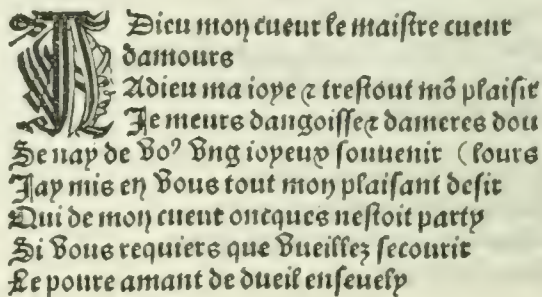 ADieu mon cueur le maistre cueur
damours
Adieu ma ioye ⁊ trestout mõ plaisir
Je meurs dangoisse⁊ dameres dou
Se nay de vo⁹ vng ioyeux souuenir (lours
Jay mis en vous tout mon plaisant desir
Qui de mon cueur oncques nestoit party
Si vous requiers que vueillez secourir
Le poure amant de dueil enseuely